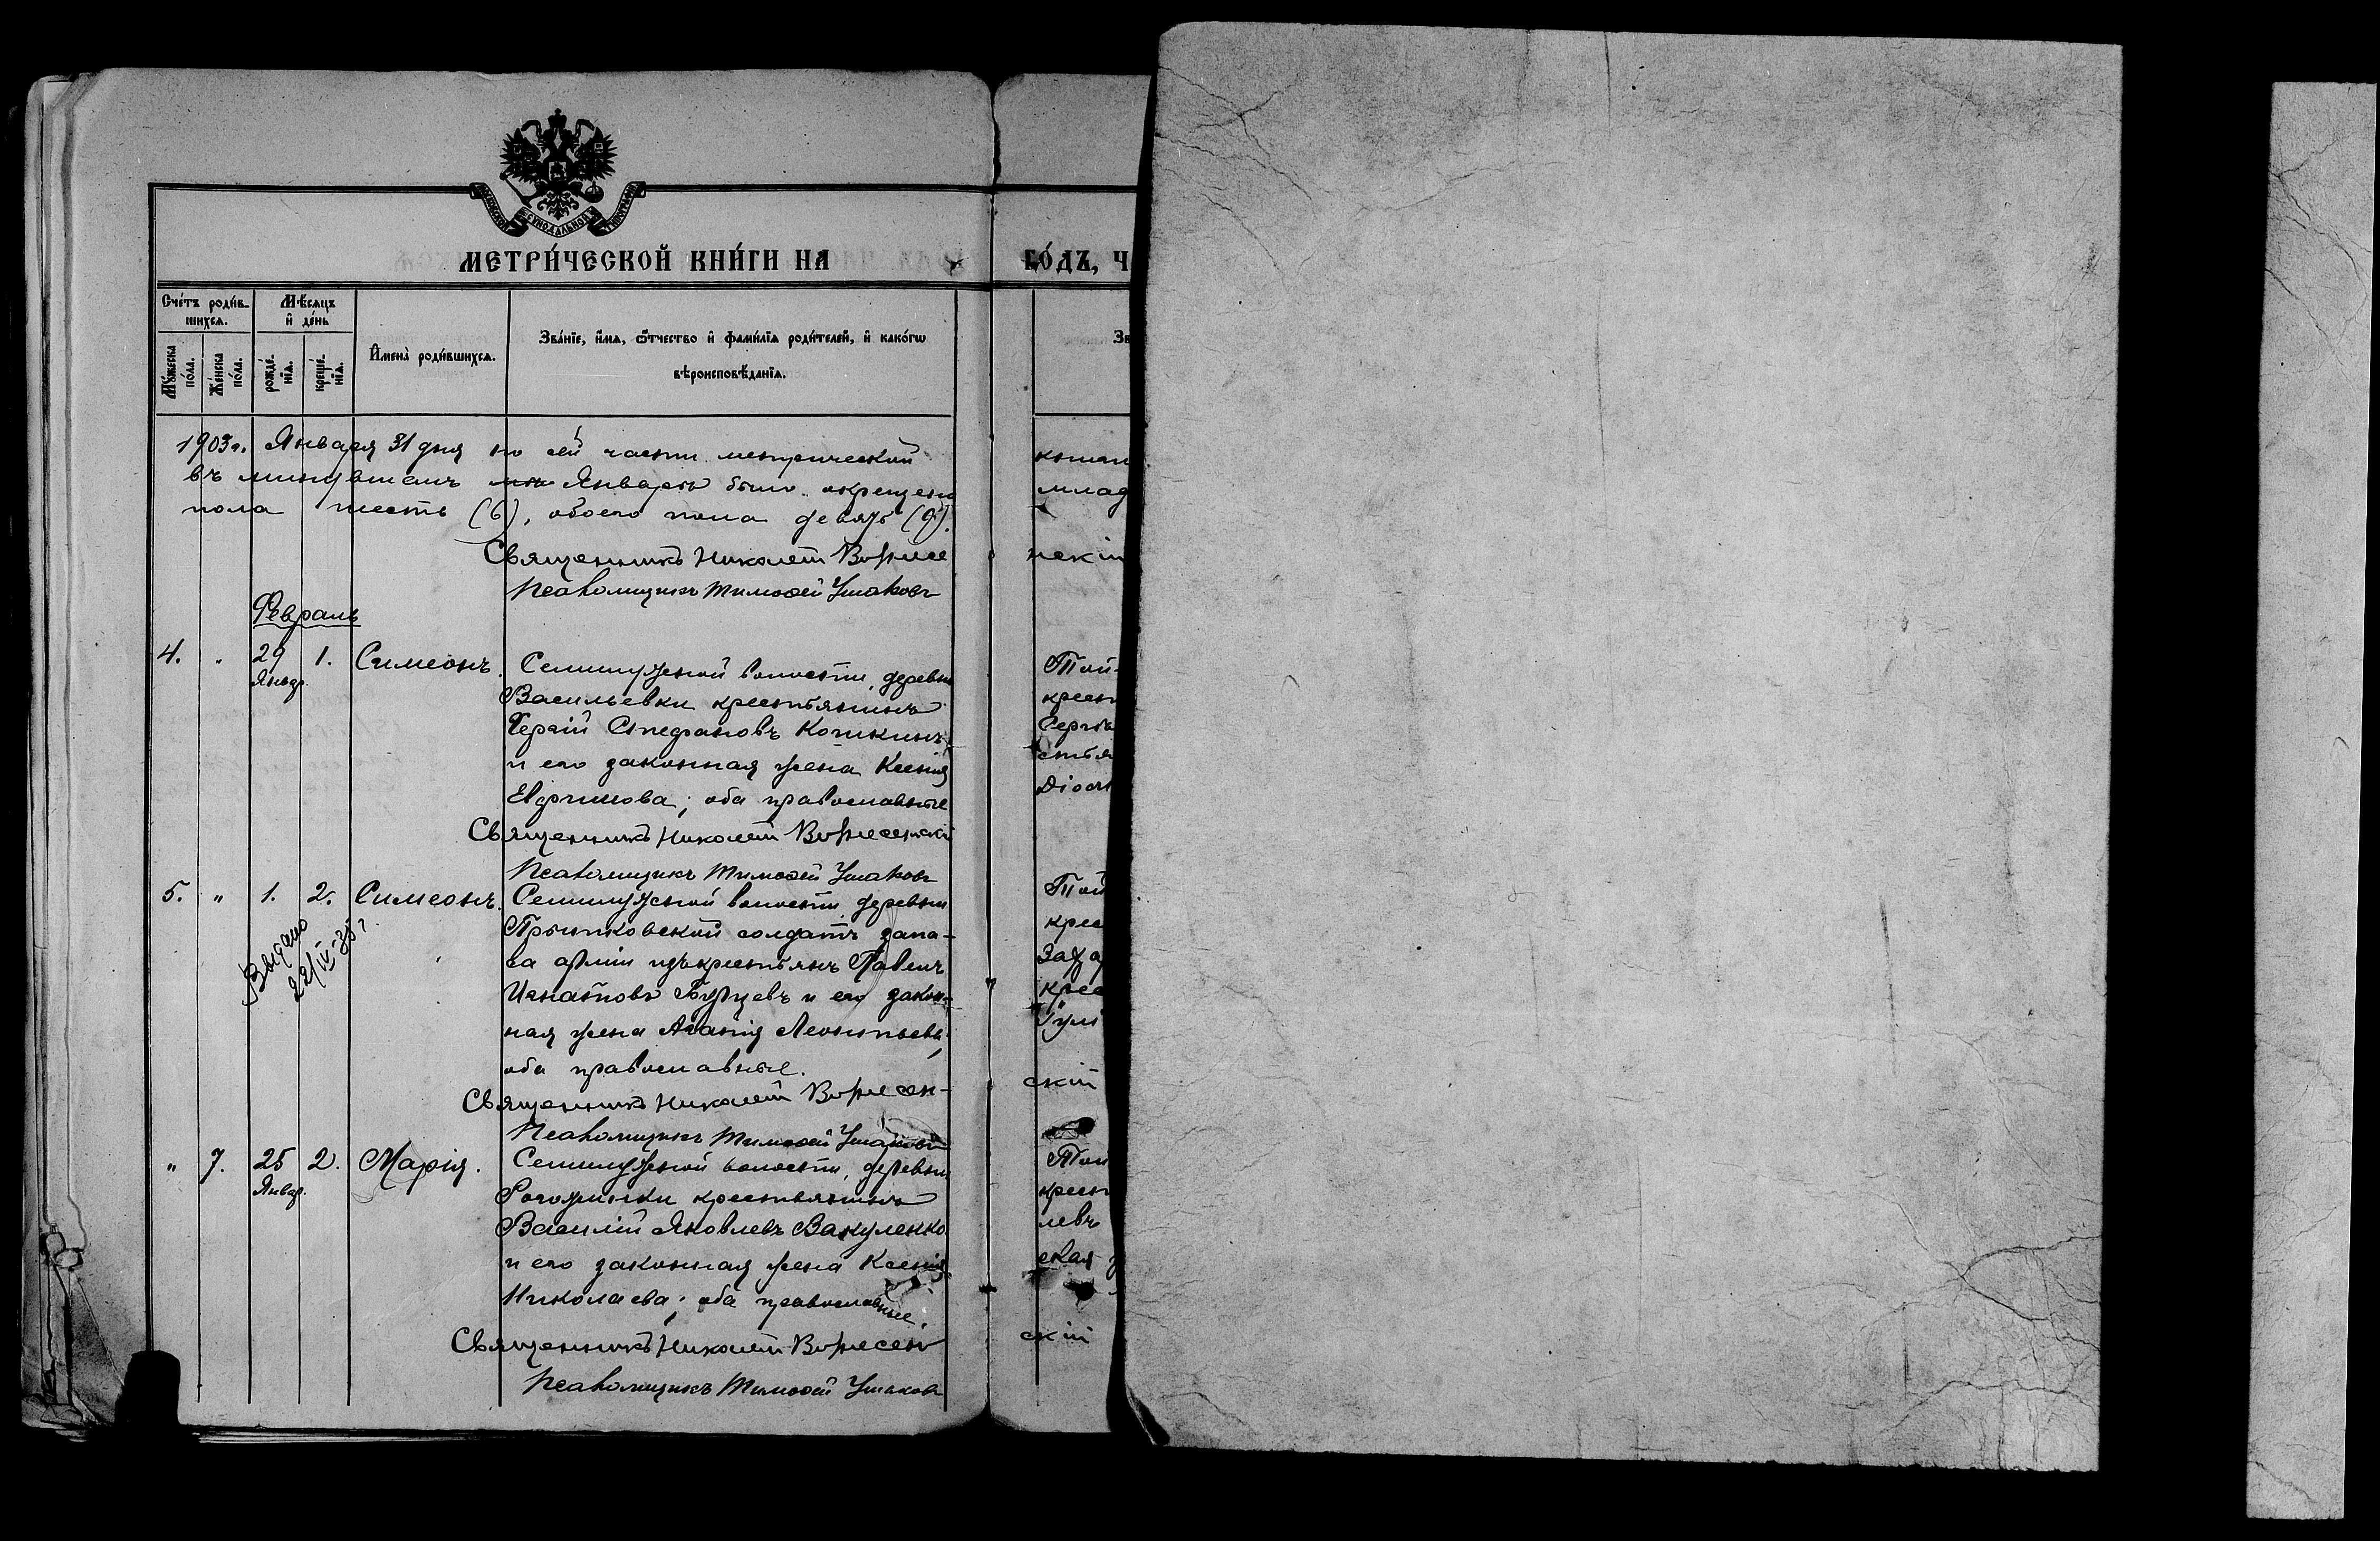 МЕТРИ́ЧЕСКОЙ КНИ́ГИ НА
ГО́ДЪ, Ч
Сче́тъ роди́в-
шихся.
Мѣ́сяцъ
и҆ де́нь
Мꙋ́жеска
по́ла.
Же́нска
по́ла.
рожде́-
нїя.
креще́-
нїя.
И҆мена̀ роди́вшихся.
Зва́нїе, и҆́мя, ѻ҆́тчество и҆ фами́лїя роди́телей, и҆ како́гѡ
вѣроисповѣ́данїя.
Зв
1903 г. Января 31 дня по сей части метрической
въ минувшемъ Январѣ было окрещено
пола шесть (6), обоего пола девять (9).
Священникъ Николай Вознесе
Псаломщикъ Тимоѳей Ушаковъ
Февраль
4. " 29 Январ. 1. Симеонъ.
Семилужной волости, деревни
Васильевки крестьянинъ
Сергій Стефановъ Кошкинъ
и его законная жена Ксенія
Евфимова; оба православные
Священникъ Николай Вознесенскій
Псаломщикъ Тимоѳей Ушаковъ
5. " 1. 2. Симеонъ.
Выдано
22/IV-35 г.
Семилужной волости деревни
солдатъ запа-
са арміи изъ крестьянъ Павелъ
Игнатовъ и его закон-
ная жена Агапія Леонтьева
оба православные.
Священникъ Николай Вознесен-
Псаломщикъ Тимоѳей Ушаковъ
" 7. 25 Январ. 2. Марія.
Семилужной волости, деревни
крестьянинъ
Василій Яковлевъ Вакуленко
и его законная жена Ксенія
Николаева; оба православные.
Священникъ Николай Вознесен
Псаломщикъ Тимоѳей Ушаковъ
млад
Той-
крест
Сергѣ
Той
крес
крес
скій
Той
крест
левъ
ская
скій